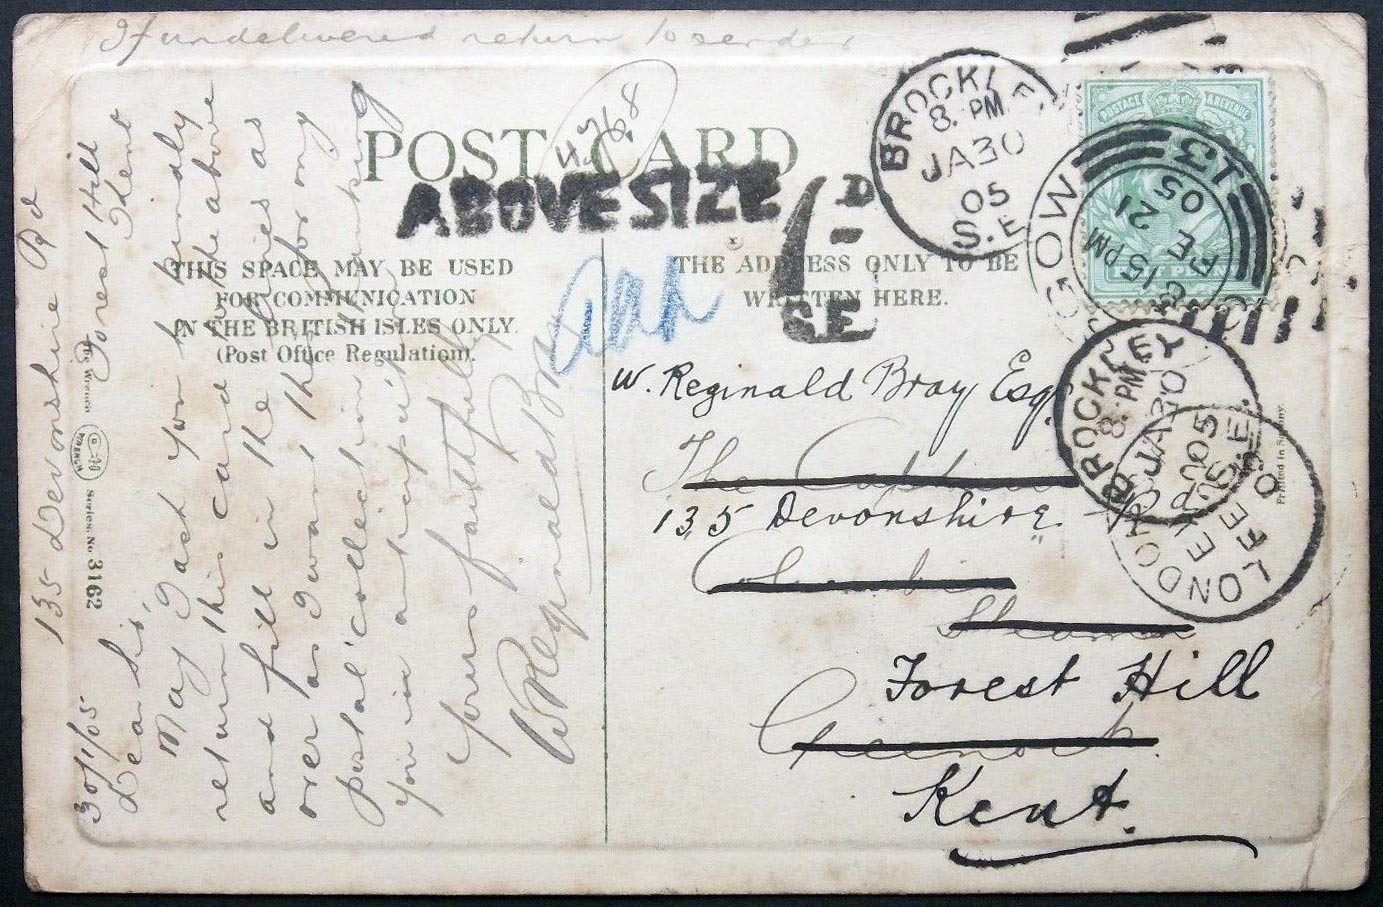 If undelivered return to sender
4768
POST CARD
ABOVE SIZE
1D
S.E.
THIS SPACE MAY BE USED
FOR COMMUNICATION
IN THE BRITISH ISLES ONLY.
(Post Office Regulation).
THE ADDRESS ONLY TO BE
WRITTEN HERE.
135 Devonshire Rd
Forest Hill
Kent
30/1/05
Dear Sir,
May I ask you to kindly
return this card to the above
and fill in the
over as I want them for my
postal collection Thanking
you in anticipation
Yours faithfully
W Reginald Bray
The Wrench
WRENCH
Series. No. 3162
W. Reginald Bray Esq.
The Captain
135 Devonshire Rd
Columbia
Steamer
Forest Hill
Greenock
Kent.
BROCKLEY
8. PM
JA 30
05
S.E.
POSTAGE & REVENUE
GOW
15 PM
FE 21
05
BROCKLEY
8. PM
JA 30
05
S.E.
LONDON
FE
Printed in Saxony.